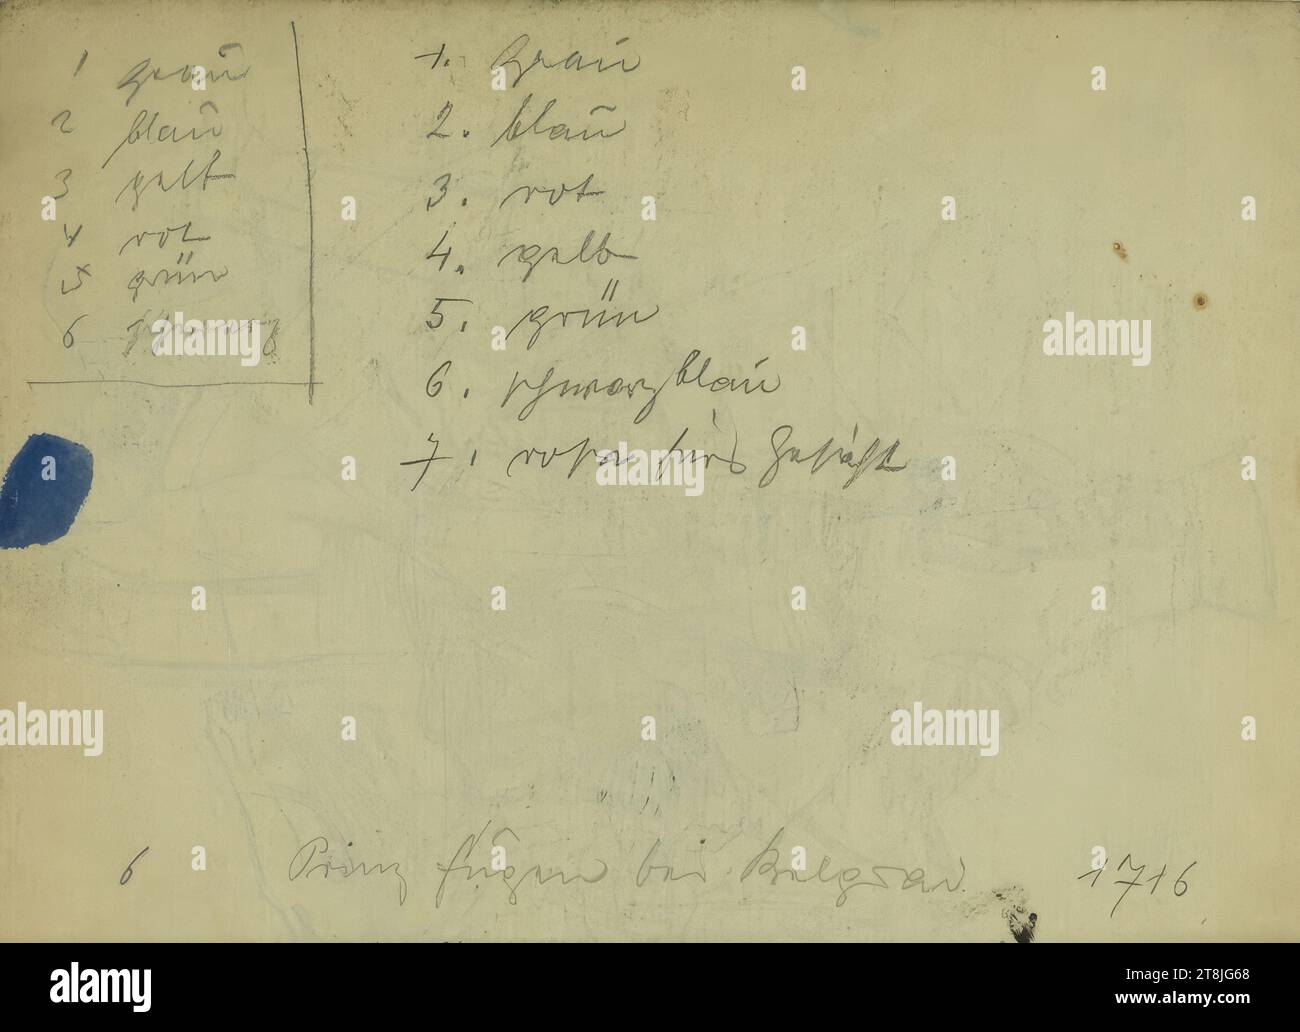 1 grau
2 blau
3 gelb
4 rot
5 grün
6 schwarz
1. Grau
2. blau
3. rot
4. gelb
5. grün
6. schwarzblau
7. rosa fürs Gesicht
6 Prinz Eugen bei Belgrad 1716
alamy
Image ID: 2T8JG68
www.alamy.com